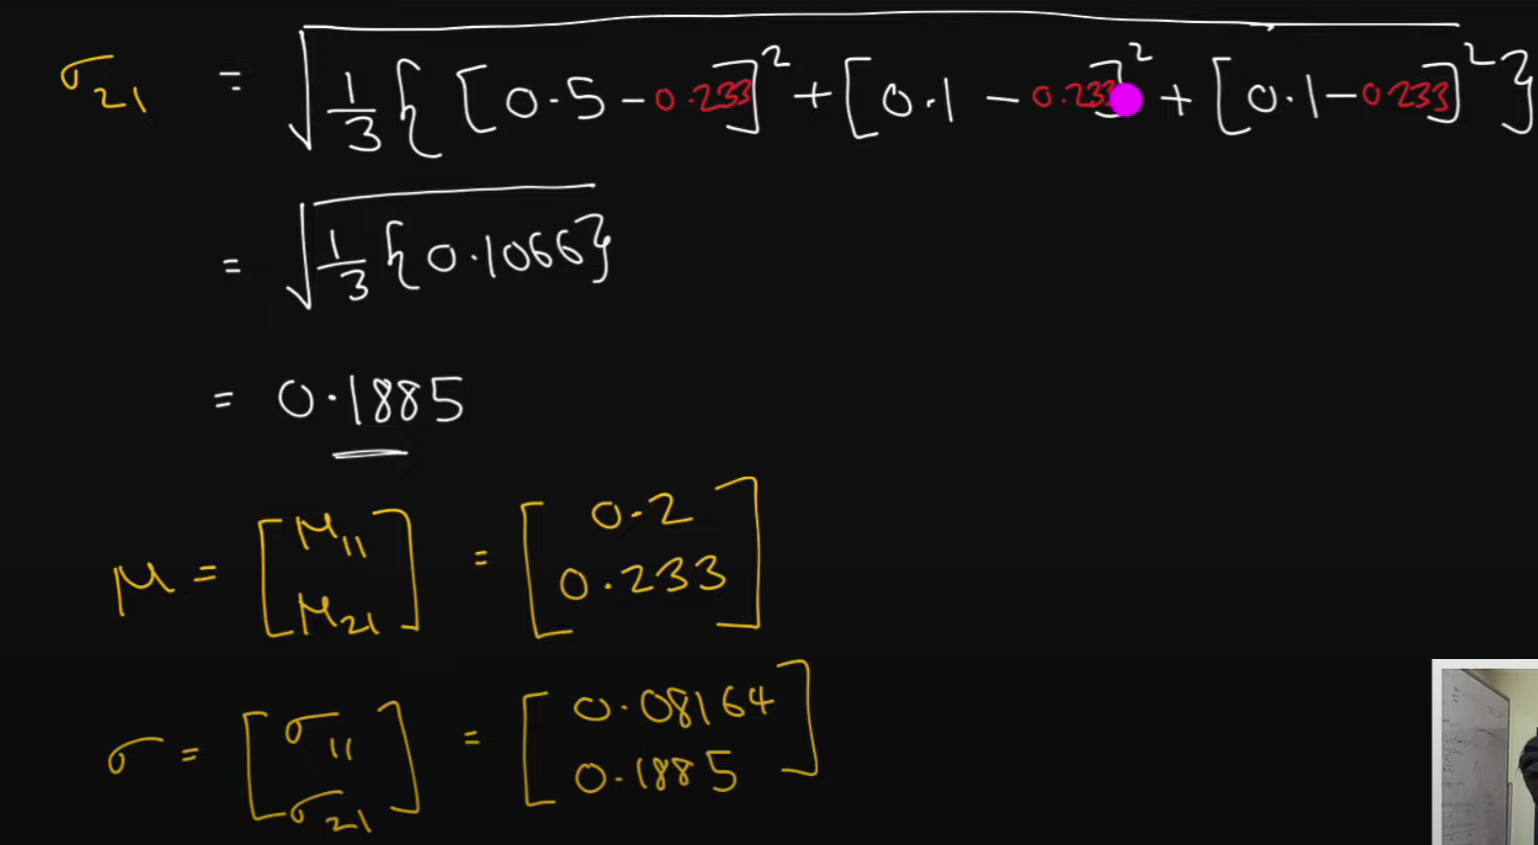 σ₂₁ = √(1/3 { [0.5 - 0.233]² + [0.1 - 0.233]² + [0.1 - 0.233]² })
= √(1/3 {0.1066})
= 0.1885
μ = [μ₁₁ μ₂₁] = [0.2 0.233]
σ = [σ₁₁ σ₂₁] = [0.08164 0.1885]